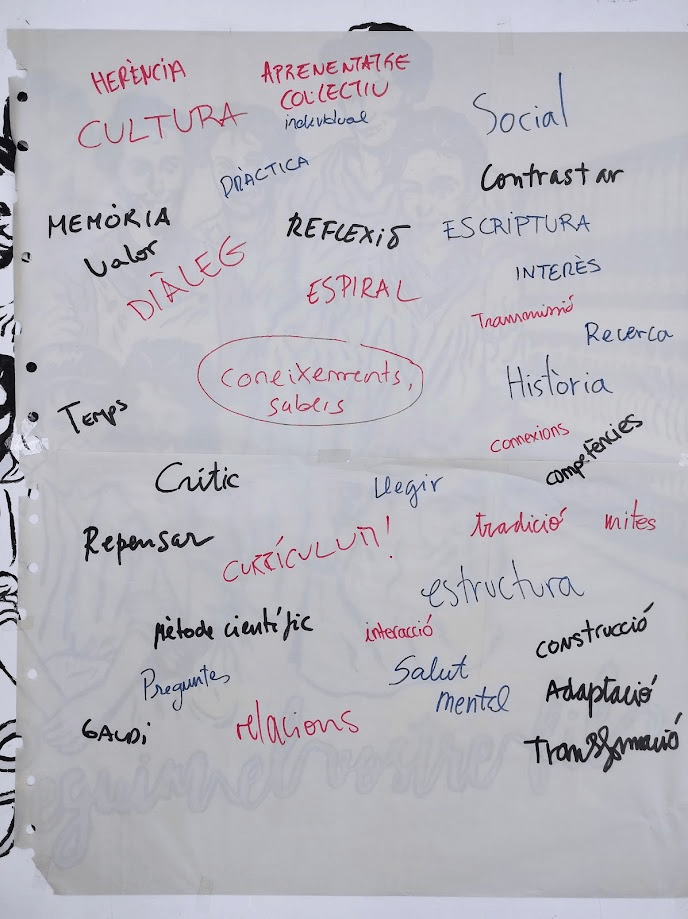 HERÈNCIA
APRENENTATGE
COL·LECTIU
individual
CULTURA
Social
PRÀCTICA
Contrastar
MEMÒRIA
REFLEXIÓ
ESCRIPTURA
Valor
DIÀLEG
INTERÈS
ESPIRAL
Transmissió
Recerca
coneixements,
sabers
Història
Temps
connexions
competències
Crític
Llegir
Repensar
CURRÍCULUM!
tradició
mites
estructura
Mètode científic
interacció
construcció
Preguntes
Salut
mental
Adaptació
GAUDI
relacions
Transformació